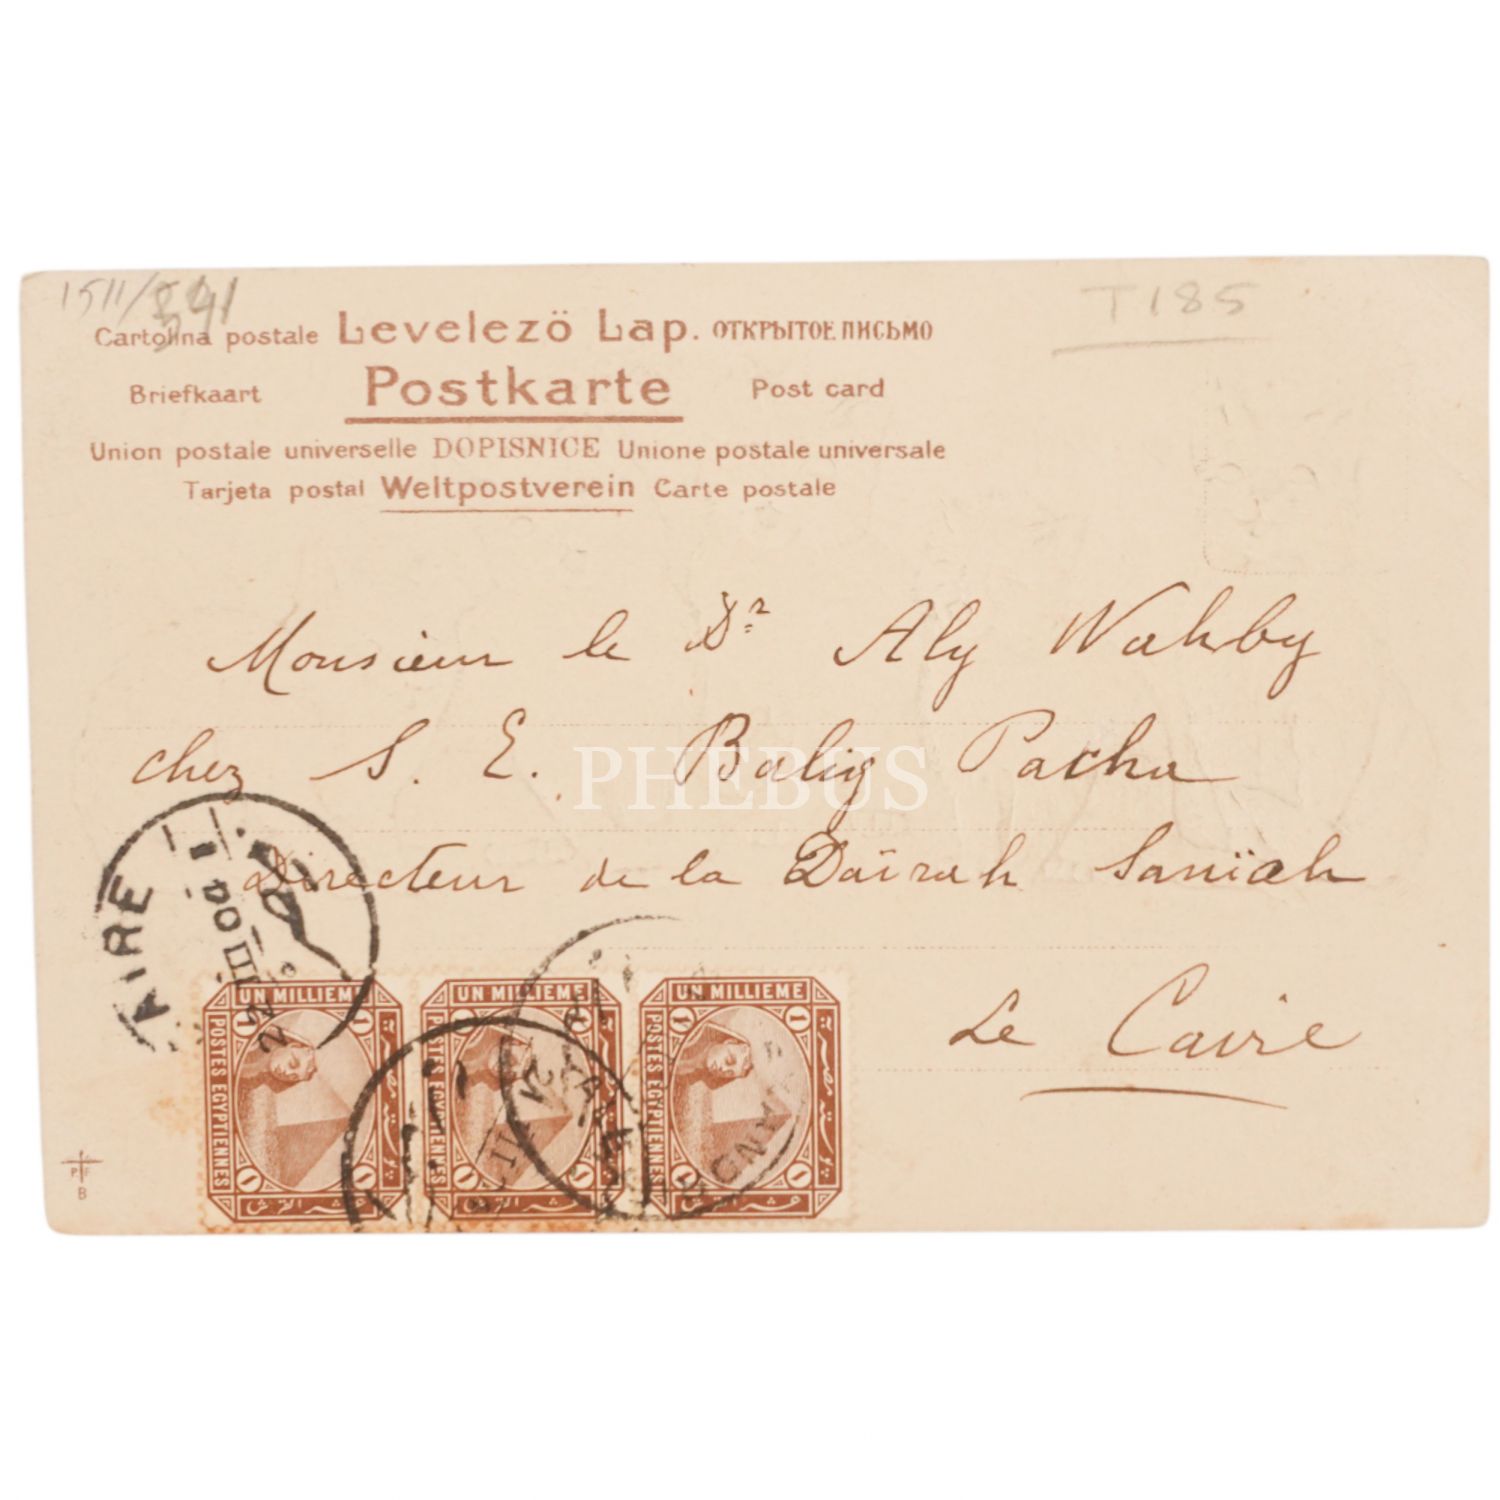 1511/541
T185
Cartolina postale Levelező Lap. ОТКРЫТОЕ ПИСЬМО
Briefkaart Postkarte Post card
Union postale universelle DOPISNICE Unione postale universale
Tarjeta postal Weltpostverein Carte postale
Monsieur le Dr Aly Wahby
chez S. E. Balig Pacha
PHEBUS
Directeur de la Daïrah Saniah
Le Caire
AIRE
UN MILLIEME UN MILLIEME UN MILLIEME
POSTES EGYPTIENNES POSTES EGYPTIENNES POSTES EGYPTIENNES
1 1 1 1 1 1 1 1 1 1 1 1
P F
B